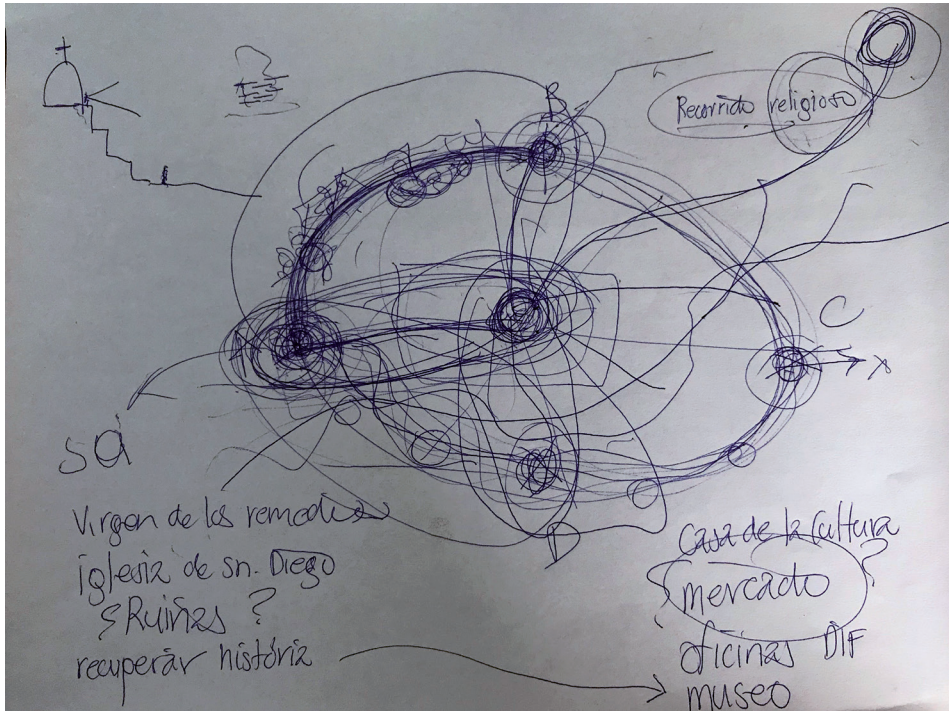 B
Recorrido religioso
C
x
sa
D
Virgen de los remedios
iglesia de sn. Diego
¿Ruinas?
recuperar história
Casa de la Cultura
¿mercado?
oficinas DIF
museo